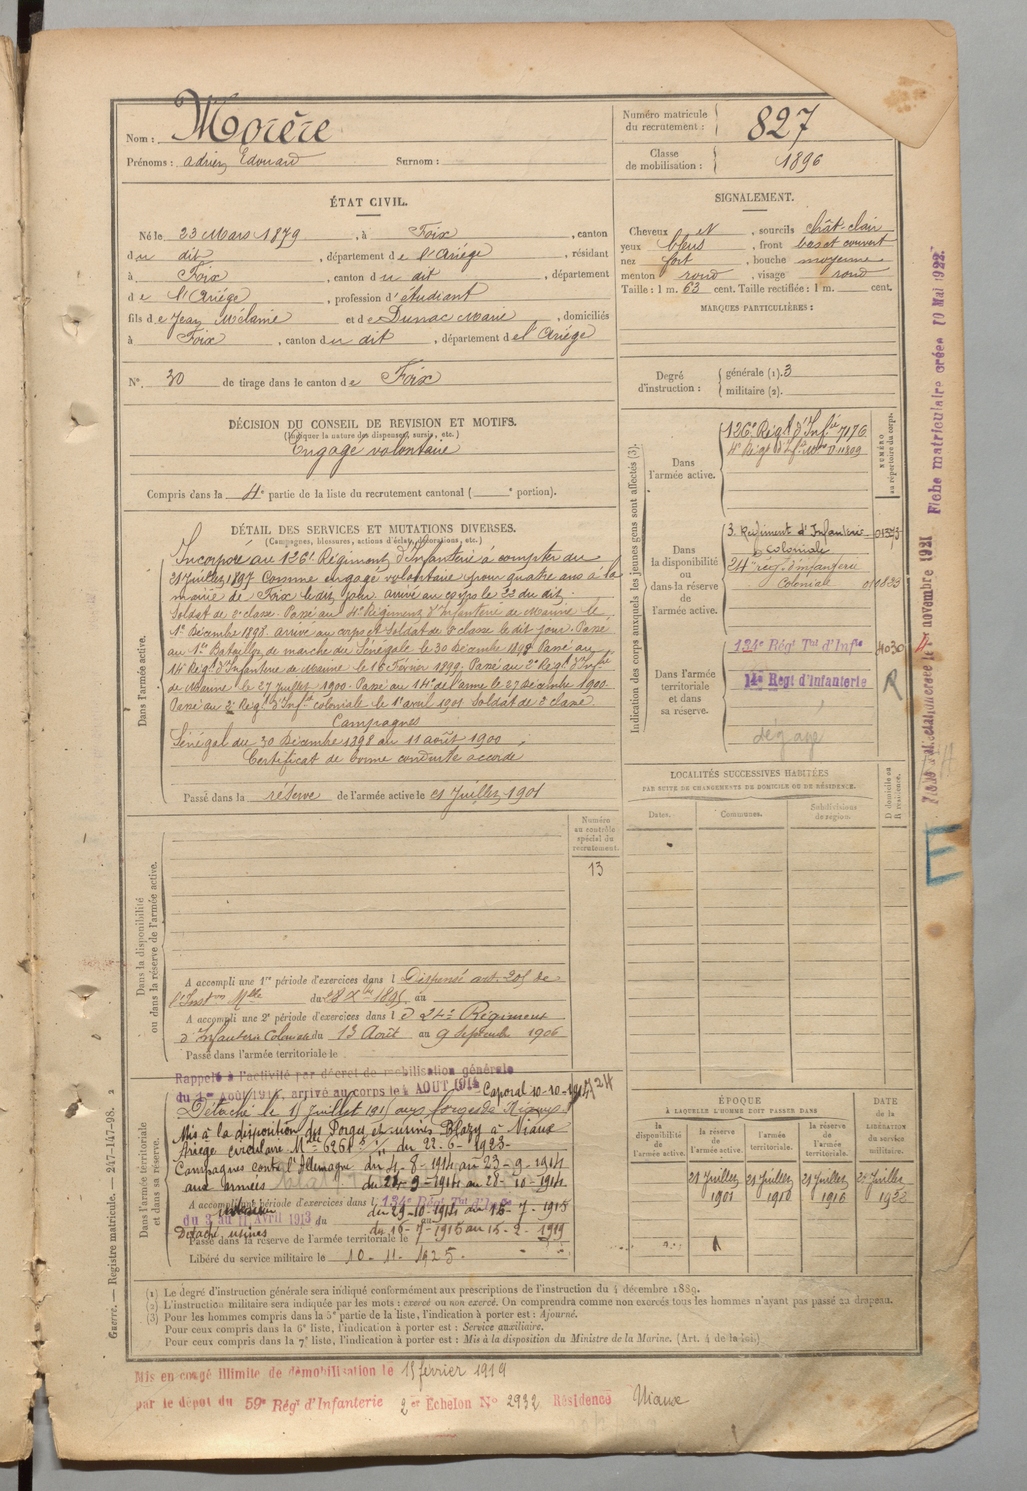 Nom : Morère
Prénoms : Adrien Edouard Surnom :
Numéro matricule du recrutement : 827
Classe de mobilisation : 1896
ÉTAT CIVIL.
Né le 23 Mars 1879, à Foix, canton
du dit, département de l'Ariége, résidant
à Foix, canton du dit, département
de l'Ariége, profession d'étudiant
fils de Jean Mélanie et de Dunac Marie, domiciliés
à Foix, canton du dit, département de l'Ariége
N° 30 de tirage dans le canton de Foix
SIGNALEMENT.
Cheveux N, sourcils chât-clair
yeux bleus, front bas et couvert
nez fort, bouche moyenne
menton rond, visage rond
Taille : 1 m. 63 cent. Taille rectifiée : 1 m. cent.
MARQUES PARTICULIÈRES :
Degré d'instruction : générale (1). 3
militaire (2).
DÉCISION DU CONSEIL DE REVISION ET MOTIFS.
(Indiquer la nature des dispenses, sursis, etc.)
Engagé volontaire
Compris dans la 4e partie de la liste du recrutement cantonal ( e portion).
DÉTAIL DES SERVICES ET MUTATIONS DIVERSES.
(Campagnes, blessures, actions d'éclat, décorations, etc.)
Dans l'armée active.
Incorporé au 126e Régiment d'Infanterie à compter du
21 Juillet 1897 Comme engagé volontaire pour quatre ans à la
mairie de Foix le dit jour. arrivé au corps le 22 du dit.
Soldat de 2e classe. Passé au 4e Régiment d'Infanterie de Marine le
1er Décembre 1898. arrivé au corps et Soldat de 2e classe le dit jour. Passé
au 1er Bataillon de marche du Sénégal le 30 Décembre 1898 Passé au
14e Régt d'Infanterie de Marine le 16 Février 1899. Passé au 2e Régt d'Infie
de Marine le 27 Juillet 1900. Passé au 14e de l'arme le 27 Décembre 1900
Passé au 2e Régt d'Infie coloniale le 1er avril 1901 Soldat de 2e classe.
Campagnes
Sénégal du 30 Décembre 1898 au 11 août 1900
Certificat de bonne conduite accordé
Passé dans la réserve de l'armée active le 21 Juillet 1901
Indication des corps auxquels les jeunes gens sont affectés (3).
NUMÉRO au répertoire du corps.
Dans l'armée active.
126e Régt d'Infie 7176
4e Régt d'Infie Mne 011809
Dans la disponibilité ou dans la réserve de l'armée active.
3. Régiment d'Infanterie coloniale
24e rég. d'infanterie Coloniale 01823
Dans l'armée territoriale et dans sa réserve.
134e Régt Tal d'Infie 4030
14e Régt d'Infanterie R
dégagé
LOCALITÉS SUCCESSIVES HABITÉES
PAR SUITE DE CHANGEMENTS DE DOMICILE OU DE RÉSIDENCE.
Dates. Communes. Subdivisions de région. D domicile ou R résidence.
Numéro au contrôle spécial du recrutement.
13
Dans la disponibilité ou dans la réserve de l'armée active.
A accompli une 1re période d'exercices dans l Dispensé art. 205 de
l'Inston Mlle du 28 Xbre 1895 au
A accompli une 2e période d'exercices dans l e 24e Régiment
d'Infanterie Coloniale du 13 Août au 9 Septembre 1906
Passé dans l'armée territoriale le
Dans l'armée territoriale et dans sa réserve.
Rappelé à l'activité par décret de mobilisation générale
du 1er Août 1914, arrivé au corps le 4 AOUT 1914 Caporal 10-10-1914
Détaché le 15 Juillet 1915 aux forges de Niaux
Mis à la disposition des Forges et usines Blazy à Niaux
Ariège circulaire Mlle 6261 du 22-6-1923-
Campagnes contre l'Allemagne du 4-8-1914 au 23-9-1914
aux armées du 24-9-1914 au 28-10-1914
A accompli une période d'exercices dans l 134e Régt Tal d'Infie
intérieur du 29-10-1914 au 15-7-1915
du 3 au 11 Avril 1913 du au
Détaché, usines du 16-7-1915 au 15-2-1919
Passé dans la réserve de l'armée territoriale le
Libéré du service militaire le 10-11-1925.
ÉPOQUE
À LAQUELLE L'HOMME DOIT PASSER DANS
la disponibilité de l'armée active. la réserve de l'armée active. l'armée territoriale. la réserve de l'armée territoriale.
DATE de la LIBÉRATION du service militaire.
21 Juillet 1901 21 Juillet 1910 21 Juillet 1916 21 Juillet 1922
(1) Le degré d'instruction générale sera indiqué conformément aux prescriptions de l'instruction du 4 décembre 1889.
(2) L'instruction militaire sera indiquée par les mots : exercé ou non exercé. On comprendra comme non exercés tous les hommes n'ayant pas passé au drapeau.
(3) Pour les hommes compris dans la 5e partie de la liste, l'indication à porter est : Ajourné.
Pour ceux compris dans la 6e liste, l'indication à porter est : Service auxiliaire.
Pour ceux compris dans la 7e liste, l'indication à porter est : Mis à la disposition du Ministre de la Marine. (Art. 4 de la loi)
Mis en congé illimité de démobilisation le 15 février 1919
par le dépôt du 59e Régt d'Infanterie 2er Echelon N° 2932 Résidence Niaux
Guerre. — Registre matricule. — 247-147-98. 2
Fiche matriculaire créée 10 Mai 1922.
novembre 1921
E